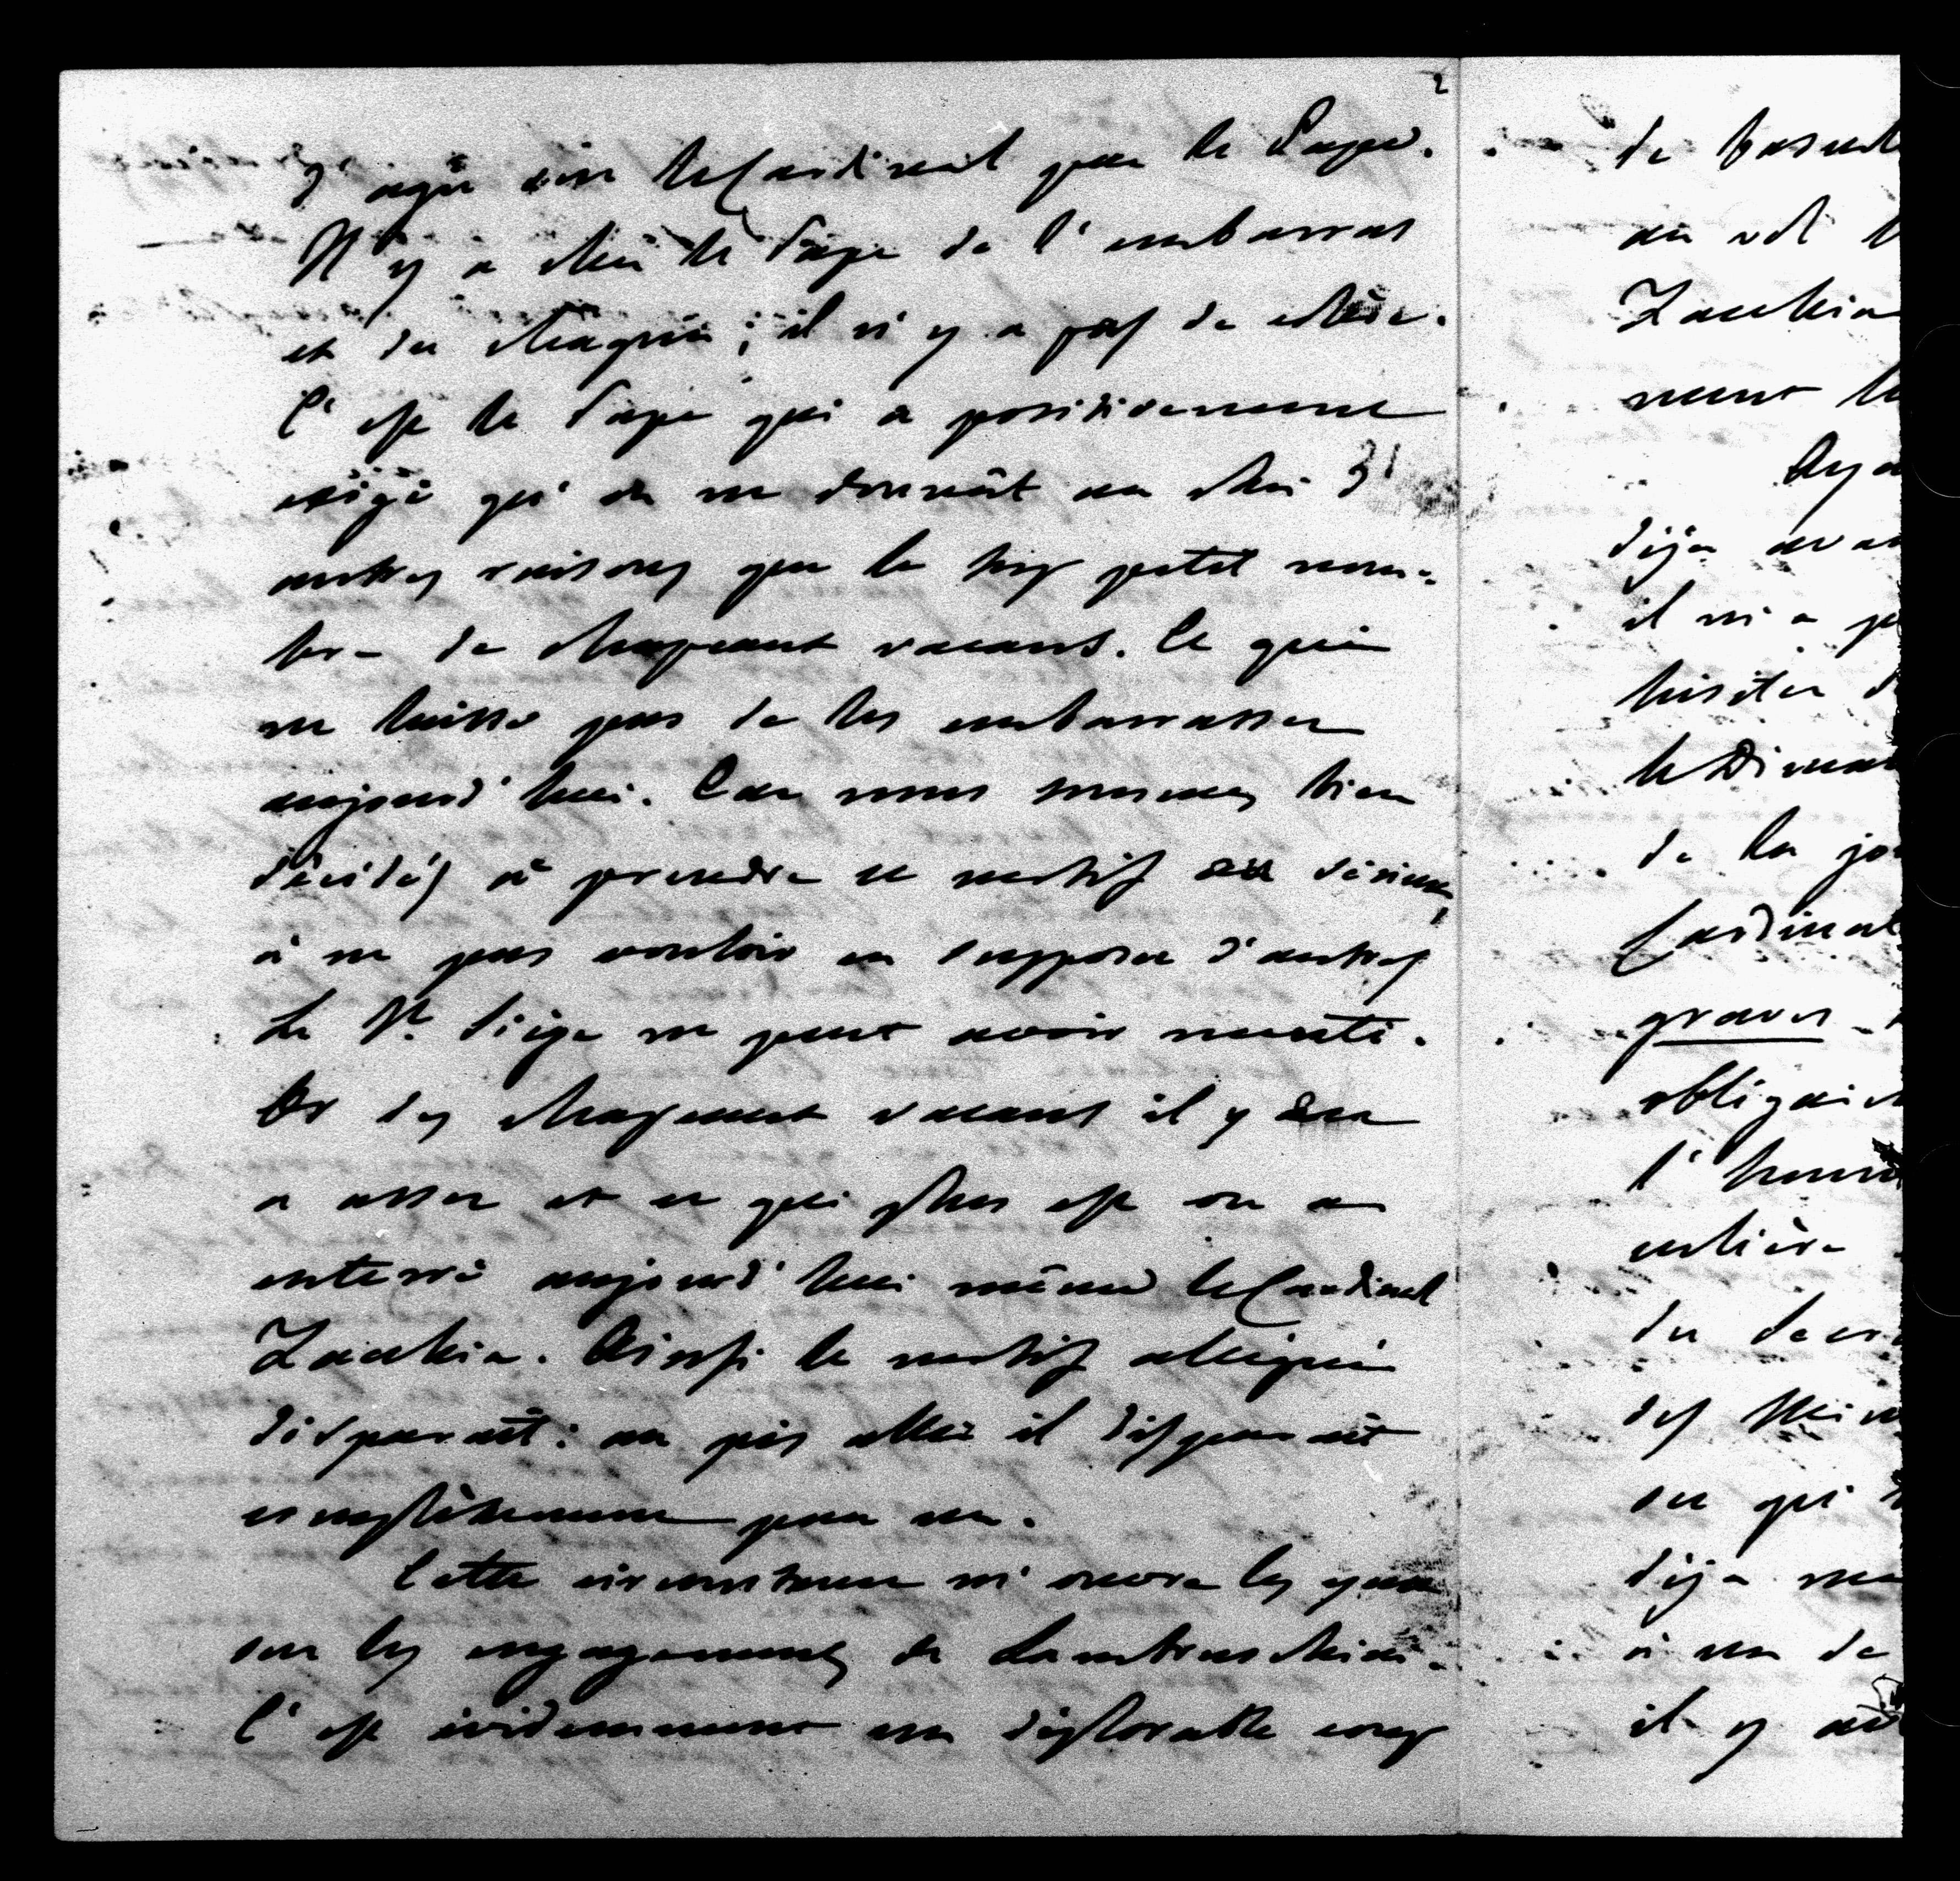 2
J'agis sur le Cardinal par le Pape.
Il y a chez le Pape de l'embarras
et du chagrin; il n'y a pas de colère.
C'est le Pape qui a positivement
exigé qu'on ne donnât au Roi d'
autres raisons que le trop petit nom-
bre de chapeaux vacants. Ce qui
ne laisse pas de les embarrasser
aujourd'hui. Car nous sommes bien
décidés à prendre ce motif au sérieux,
à ne pas vouloir en supposer d'autres
Le St. Siège ne peut avoir menti.
Or des chapeaux vacans il y en
a assez et ce qui plus est on a
enterré aujourd'hui même le Cardinal
Zacchia. Ainsi le motif allégué
disparaît: au pis aller il disparaît
complètement pour un.
Cette circonstance m'ouvre les yeux
sur les engagements de Lambruschini.
C'est évidemment un déplorable coup
de
au
Zacchia
déjà
il n'a
hésiter
de la
Cardinal
graves
l'
entière
du
des
ou qui
déjà
à un de
il y